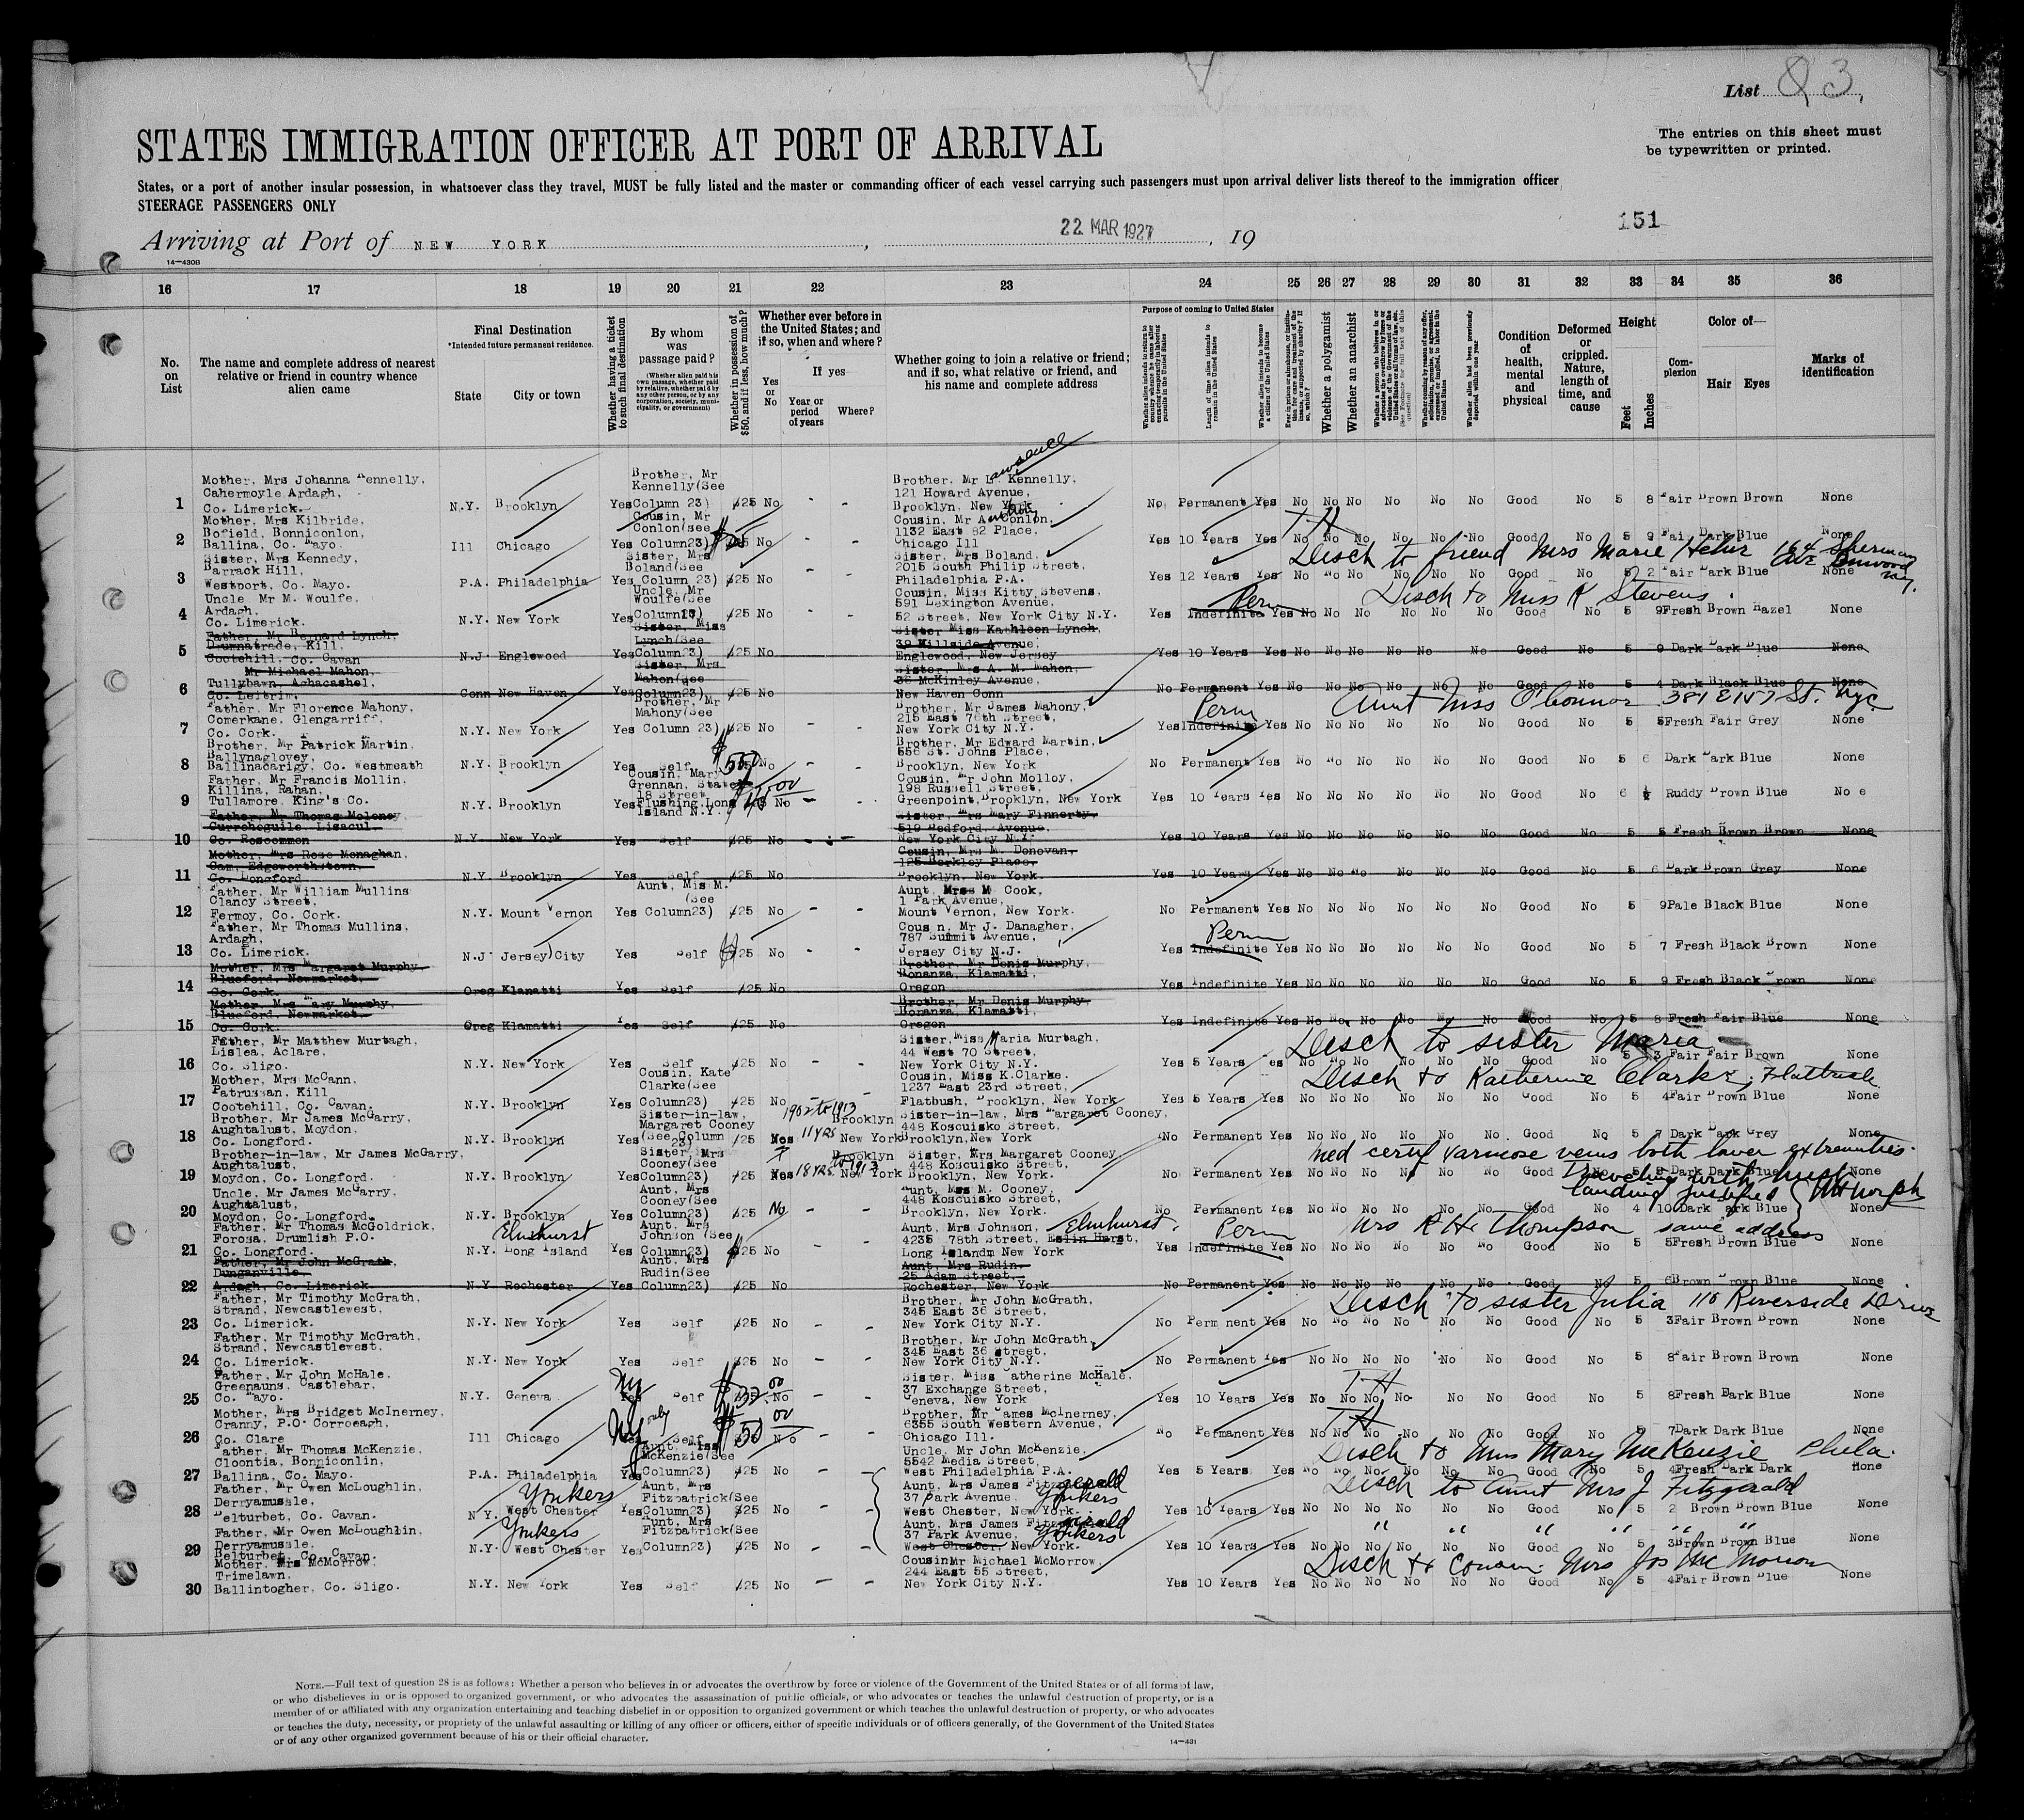 List 83.
The entries on this sheet must
be typewritten or printed.
STATES IMMIGRATION OFFICER AT PORT OF ARRIVAL
States, or a port of another insular possession, in whatsoever class they travel, MUST be fully listed and the master or commanding officer of each vessel carrying such passengers must upon arrival deliver lists thereof to the immigration officer
STEERAGE PASSENGERS ONLY
151
Arriving at Port of NEW YORK, 22 MAR 1927, 19
14—430B
16 17 18 19 20 21 22 23 24 25 26 27 28 29 30 31 32 33 34 35 36
No. on List
The name and complete address of nearest relative or friend in country whence alien came
Final Destination
*Intended future permanent residence.
State
City or town
Whether having a ticket to such final destination
By whom was passage paid?
(Whether alien paid his own passage, whether paid by relative, whether paid by any other person, or by any corporation, society, municipality, or government)
Whether in possession of $50, and if less, how much?
Whether ever before in the United States; and if so, when and where?
Yes or No
If yes—
Year or period of years
Where?
Whether going to join a relative or friend; and if so, what relative or friend, and his name and complete address
Purpose of coming to United States
Whether alien intends to return to country whence he came after engaging temporarily in laboring pursuits in the United States
Length of time alien intends to remain in the United States
Whether alien intends to become a citizen of the United States
Whether a polygamist
Whether an anarchist
Condition of health, mental and physical
Deformed or crippled. Nature, length of time, and cause
Height
Feet
Inches
Complexion
Color of—
Hair
Eyes
Marks of identification
1 Mother, Mrs Johanna Kennelly, Cahermoyle Ardagh, Co. Limerick. N.Y. Brooklyn Yes Brother, Mr Kennelly(See Column 23) $25 No - - Brother, Mr L Lawrence Kennelly, 121 Howard Avenue, Brooklyn, New York No Permanent Yes No No No No No No Good No 5 8 Fair Brown Brown None
2 Mother, Mrs Kilbride, Bofield, Bonniconlon, Ballina, Co. Mayo. Ill Chicago Yes Cousin, Mr Conlon(see Column23) No - - Cousin, Mr A Conlon, 1132 East 82 Place, Chicago Ill Yes 10 Years Yes No No No No No No Good No 5 9 Fair Dark Blue None
Disch to friend Mrs Marie 164 Sherman Ave
3 Sister, Mrs Kennedy, Barrack Hill, Westport, Co. Mayo. P.A. Philadelphia Yes Sister, Mrs Boland(See Column 23) $25 No Sister, Mrs Boland, 2015 South Philip Street, Philadelphia P.A. Yes 12 Years Yes No No No No No No Good No 5 2 Fair Dark Blue None
Perm Disch to Miss K Stevens.
4 Uncle Mr M. Woulfe. Ardagh, Co. Limerick. N.Y. New York Yes Uncle, Mr Woulfe(See Column23) $25 No - Cousin, Miss Kitty Stevens, 591 Lexington Avenue, 52 Street, New York City N.Y. Yes Indefinite Yes No No No No No No Good No 5 9 Fresh Brown Hazel None
5 Father, Mr Bernard Lynch, Drumnatrade, Kill. Cootehill, Co. Cavan N.J. Englewood Yes Sister, Miss Lynch(See Column23) $25 No Sister Miss Kathleen Lynch, 39 Hillside Avenue, Englewood, New Jersey Yes 10 Years Yes No No No No No No Good No 5 9 Dark Dark Blue None
6 Mr Michael Mahon, Tullybawn, Aghacashel, Co. Leitrim. Conn New Haven Yes Sister, Mrs. Mahon(See Column23) $25 No Sister, Mrs A. M. Mahon, 36 McKinley Avenue, New Haven Conn No Permanent Yes No No No No No No Good No 5 4 Dark Black Blue None
Perm Aunt Miss O'Connor 381 E 157 St. NYC
7 Father, Mr Florence Mahony, Comerkane, Glengarriff, Co. Cork. N.Y. New York Yes Brother, Mr Mahony(See Column 23) $25 No - Brother, Mr James Mahony, 215 East 76th Street, New York City N.Y. Yes Indefinite Yes No No No No No No Good No 5 5 Fresh Fair Grey None
8 Brother, Mr Patrick Martin, Ballynaglovey, Ballinacarigy, Co. Westmeath N.Y. Brooklyn Yes Self No - - Brother, Mr Edward Martin, 556 St. Johns Place, Brooklyn, New York No Permanent Yes No No No No No No Good No 5 6 Dark Dark Blue None
9 Father, Mr Francis Mollin, Killina, Rahan, Tullamore, King's Co. N.Y. Brooklyn Yes Cousin, Mary Grennan, State 18 Street, Flushing Long Island N.Y. No - - Cousin, Mr John Molloy, 198 Russell Street, Greenpoint, Brooklyn, New York Yes 10 Years Yes No No No No No No Good No 6 Ruddy Brown Blue No e
10 Father, Mr Thomas Moloney Curreheguile, Lisacul. Co. Roscommon N.Y. New York Yes Self $25 No - - Sister, Mrs Mary Finnerty, 519 Bedford, Avenue, New York City N.Y. Yes 10 Years Yes No No No No No No Good No 5 5 Fresh Brown Brown None
11 Mother, Mrs Rose Monaghan, Cam, Edgeworthstown, Co. Longford N.Y. Brooklyn Yes Self $25 No Cousin, Mrs M. Donovan, 125 Berkley Place, Brooklyn, New York. Yes 10 Years Yes No No No No No No Good No 5 6 Dark Brown Grey None
12 Father, Mr William Mullins Clancy Street, Fermoy, Co. Cork. N.Y. Mount Vernon Yes Aunt, Mis M. (See Column23) $25 No - - Aunt, Mrs M Cook, 1 Park Avenue, Mount Vernon, New York. No Permanent Yes No No No No No No Good No 5 9 Pale Black Blue None
13 Father, Mr Thomas Mullins, Ardagh, Co. Limerick. N.J. Jersey City Yes Self $25 No - - Cous n, Mr J. Danagher, 787 Summit Avenue, Jersey City N.J. Yes Perm Indefinite Yes No No No No No No Good No 5 7 Fresh Black Brown None
14 Mother, Mrs Margaret Murphy, Blueford, Newmarket, Co. Cork. Oreg Klamatti Yes Self $25 No Brother, Mr Denis Murphy, Bonanza, Klamatti, Oregon Yes Indefinite Yes No No No No No No Good No 5 9 Fresh Black Brown None
15 Mother, Mrs Mary Murphy, Blueford, Newmarket. Co. Cork. Oreg Klamatti Yes Self $25 No Brother, Mr Denis Murphy, Bonanza, Klamatti, Oregon Yes Indefinite Yes No No No No No No Good No 5 8 Fresh Fair Blue None
Disch to sister Maria
16 Father, Mr Matthew Murtagh, Lislea, Aclare, Co. Sligo. N.Y. New York Yes Self $25 No - - Sister, Miss Maria Murtagh, 44 West 70 Street, New York City N.Y. Yes 5 Years es No No No No No No Good No 5 3 Fair Fair Brown None
Disch to Katherine Clarke, Flatbush
17 Mother, Mrs McCann, Patrussan, Kill Cootehill, Co. Cavan. N.Y. Brooklyn Yes Cousin, Kate Clarke(See Column23) $25 No - - Cousin, Miss K.Clarke. 1237 East 23rd Street, Flatbush, Brooklyn, New York Yes 5 Years Yes No No No No No No Good No 5 4 Fair Brown Blue None
18 Brother, Mr James McGarry, Aughtalust, Moydon, Co. Longford. N.Y. Brooklyn Yes Sister-in-law, Margaret Cooney (See Column 23) $25 Yes 1902 to 1913 11 yrs Brooklyn New York Sister-in-law, Mrs Margaret Cooney, 448 Koscuisko Street, Brooklyn, New York No Permanent Yes No No No No No No Good No 5 7 Dark Dark Grey None
Med certif varicose veins both lower extremities.
19 Brother-in-law, Mr James McGarry, Aughtalust, Moydon, Co. Longford. N.Y. Brooklyn Yes Sister, Mrs Cooney(See Column23) $25 Yes 18 yrs. to 1913 Brooklyn New York Sister, Mrs Margaret Cooney, 448 Koscuisko Street, Brooklyn, New York No Permanent Yes No No No No No No Good No 5 8 Dark Dark Blue None
Traveling with husb landing justified
20 Uncle, Mr James McGarry, Aughtalust, Moydon, Co. Longford. N.Y. Brooklyn Yes Aunt, Mrs Cooney(See Column23) $25 No - - Aunt, Mrs M. Cooney, 448 Koscuisko Street, Brooklyn, New York. No Permanent Yes No No No No No No Good No 4 10 Dark Dark Blue None
Perm Mrs R H. Thompson same address
21 Father, Mr Thomas McGoldrick, Forosa, Drumlish P.O. Co. Longford. N.Y. Elmhurst Long Island Yes Aunt, Mrs Johnson (See Column23) $25 No Aunt, Mrs Johnson, 4235 78th Street, Elmhurst, Eslin Hurst, Long Islandm New York Yes Indefinite Yes No No No No No No Good No 5 5 Fresh Brown Blue None
22 Father, Mr John McGrath, Dunganville, Ardagh, Co. Limerick. N.Y. Rochester Yes Aunt, Mrs Rudin(See Column23) $25 No Aunt, Mrs Rudin. 25 Adam Street, Rochester, New York No Permanent Yes No No No No No No Good No 5 6 Brown Brown Blue None
Disch to sister Julia 110 Riverside Drive
23 Father, Mr Timothy McGrath, Strand, Newcastlewest, Co. Limerick. N.Y. New York Yes Self $25 No - - Brother, Mr John McGrath, 345 East 36 Street, New York City N.Y. No Perm nent Yes No No No No No No Good No 5 3 Fair Brown Brown None
24 Father, Mr Timothy McGrath, Strand, Newcastlewest, Co. Limerick. N.Y. New York Yes Self $25 No - - Brother, Mr John McGrath, 345 East 36 Street, New York City N.Y. No Permanent Yes No No No No No No Good No 5 8 Fair Brown Brown None
25 Father, Mr John McHale, Greenauns, Castlebar, Co. Mayo. N.Y. Geneva NY Yes Self No - - Sister, Miss Catherine McHale, 37 Exchange Street, Geneva, New York Yes 10 Years Yes No No No No No No Good No 5 8 Fresh Dark Blue None
26 Mother, Mrs Bridget McInerney, Cranny, P.O. Corroeaph, Co. Clare Ill Chicago NY only Self $50 00 No - - Brother, Mr James McInerney, 6355 South Western Avenue, Chicago Ill. No Permanent Yes No No No No No No Good No 5 7 Dark Dark Blue None
Disch to Miss Mary McKenzie Phila.
27 Father, Mr Thomas McKenzie, Cloontia, Bonniconlin, Ballina, Co. Mayo. P.A. Philadelphia Yes Aunt, Miss McKenzie(See Column23) $25 No - - Uncle, Mr John McKenzie, 5542 Media Street, West Philadelphia P.A. Yes 5 Years Yes No No No No No No Good No 5 4 Fresh Dark Dark None
Disch to Aunt Mrs J Fitzgerald
28 Father, Mr Owen McLoughlin, Derryamusale, Belturbet, Co. Cavan. N.Y. Yonkers West Chester Yes Aunt, Mrs Fitzpatrick(See Column23) $25 No - - Aunt, Mrs James Fitzgerald 37 Park Avenue, Yonkers West Chester, New York. Yes 10 Years Yes No No No No No No Good No 5 2 Brown Brown Blue None
29 Father, Mr Owen McLoughlin, Derryamusale, Belturbet, Co. Cavan. N.Y. Yonkers West Chester Yes Aunt, Mrs Fitzpatrick(See Column23) $25 No - - Aunt, Mrs James Fitzgerald 37 Park Avenue, Yonkers West Chester, New York. Yes 10 Years Yes No No No No No No Good No 5 3 Brown Brown Blue None
Disch to Cousin Mrs Jos McMorrow
30 Mother, Mrs McMorrow, Trimelawn, Ballintogher, Co. Sligo. N.Y. New York Yes Self $25 No - - Cousin Mr Michael McMorrow, 244 East 55 Street, New York City N.Y. Yes 10 Years Yes No No No No No No Good No 5 4 Fair Brown Blue None
NOTE.—Full text of question 28 is as follows: Whether a person who believes in or advocates the overthrow by force or violence of the Government of the United States or of all forms of law,
or who disbelieves in or is opposed to organized government, or who advocates the assassination of public officials, or who advocates or teaches the unlawful destruction of property, or is a
member of or affiliated with any organization entertaining and teaching disbelief in or opposition to organized government or which teaches the unlawful destruction of property, or who advocates
or teaches the duty, necessity, or propriety of the unlawful assaulting or killing of any officer or officers, either of specific individuals or of officers generally, of the Government of the United States
or of any other organized government because of his or their official character.
14—431